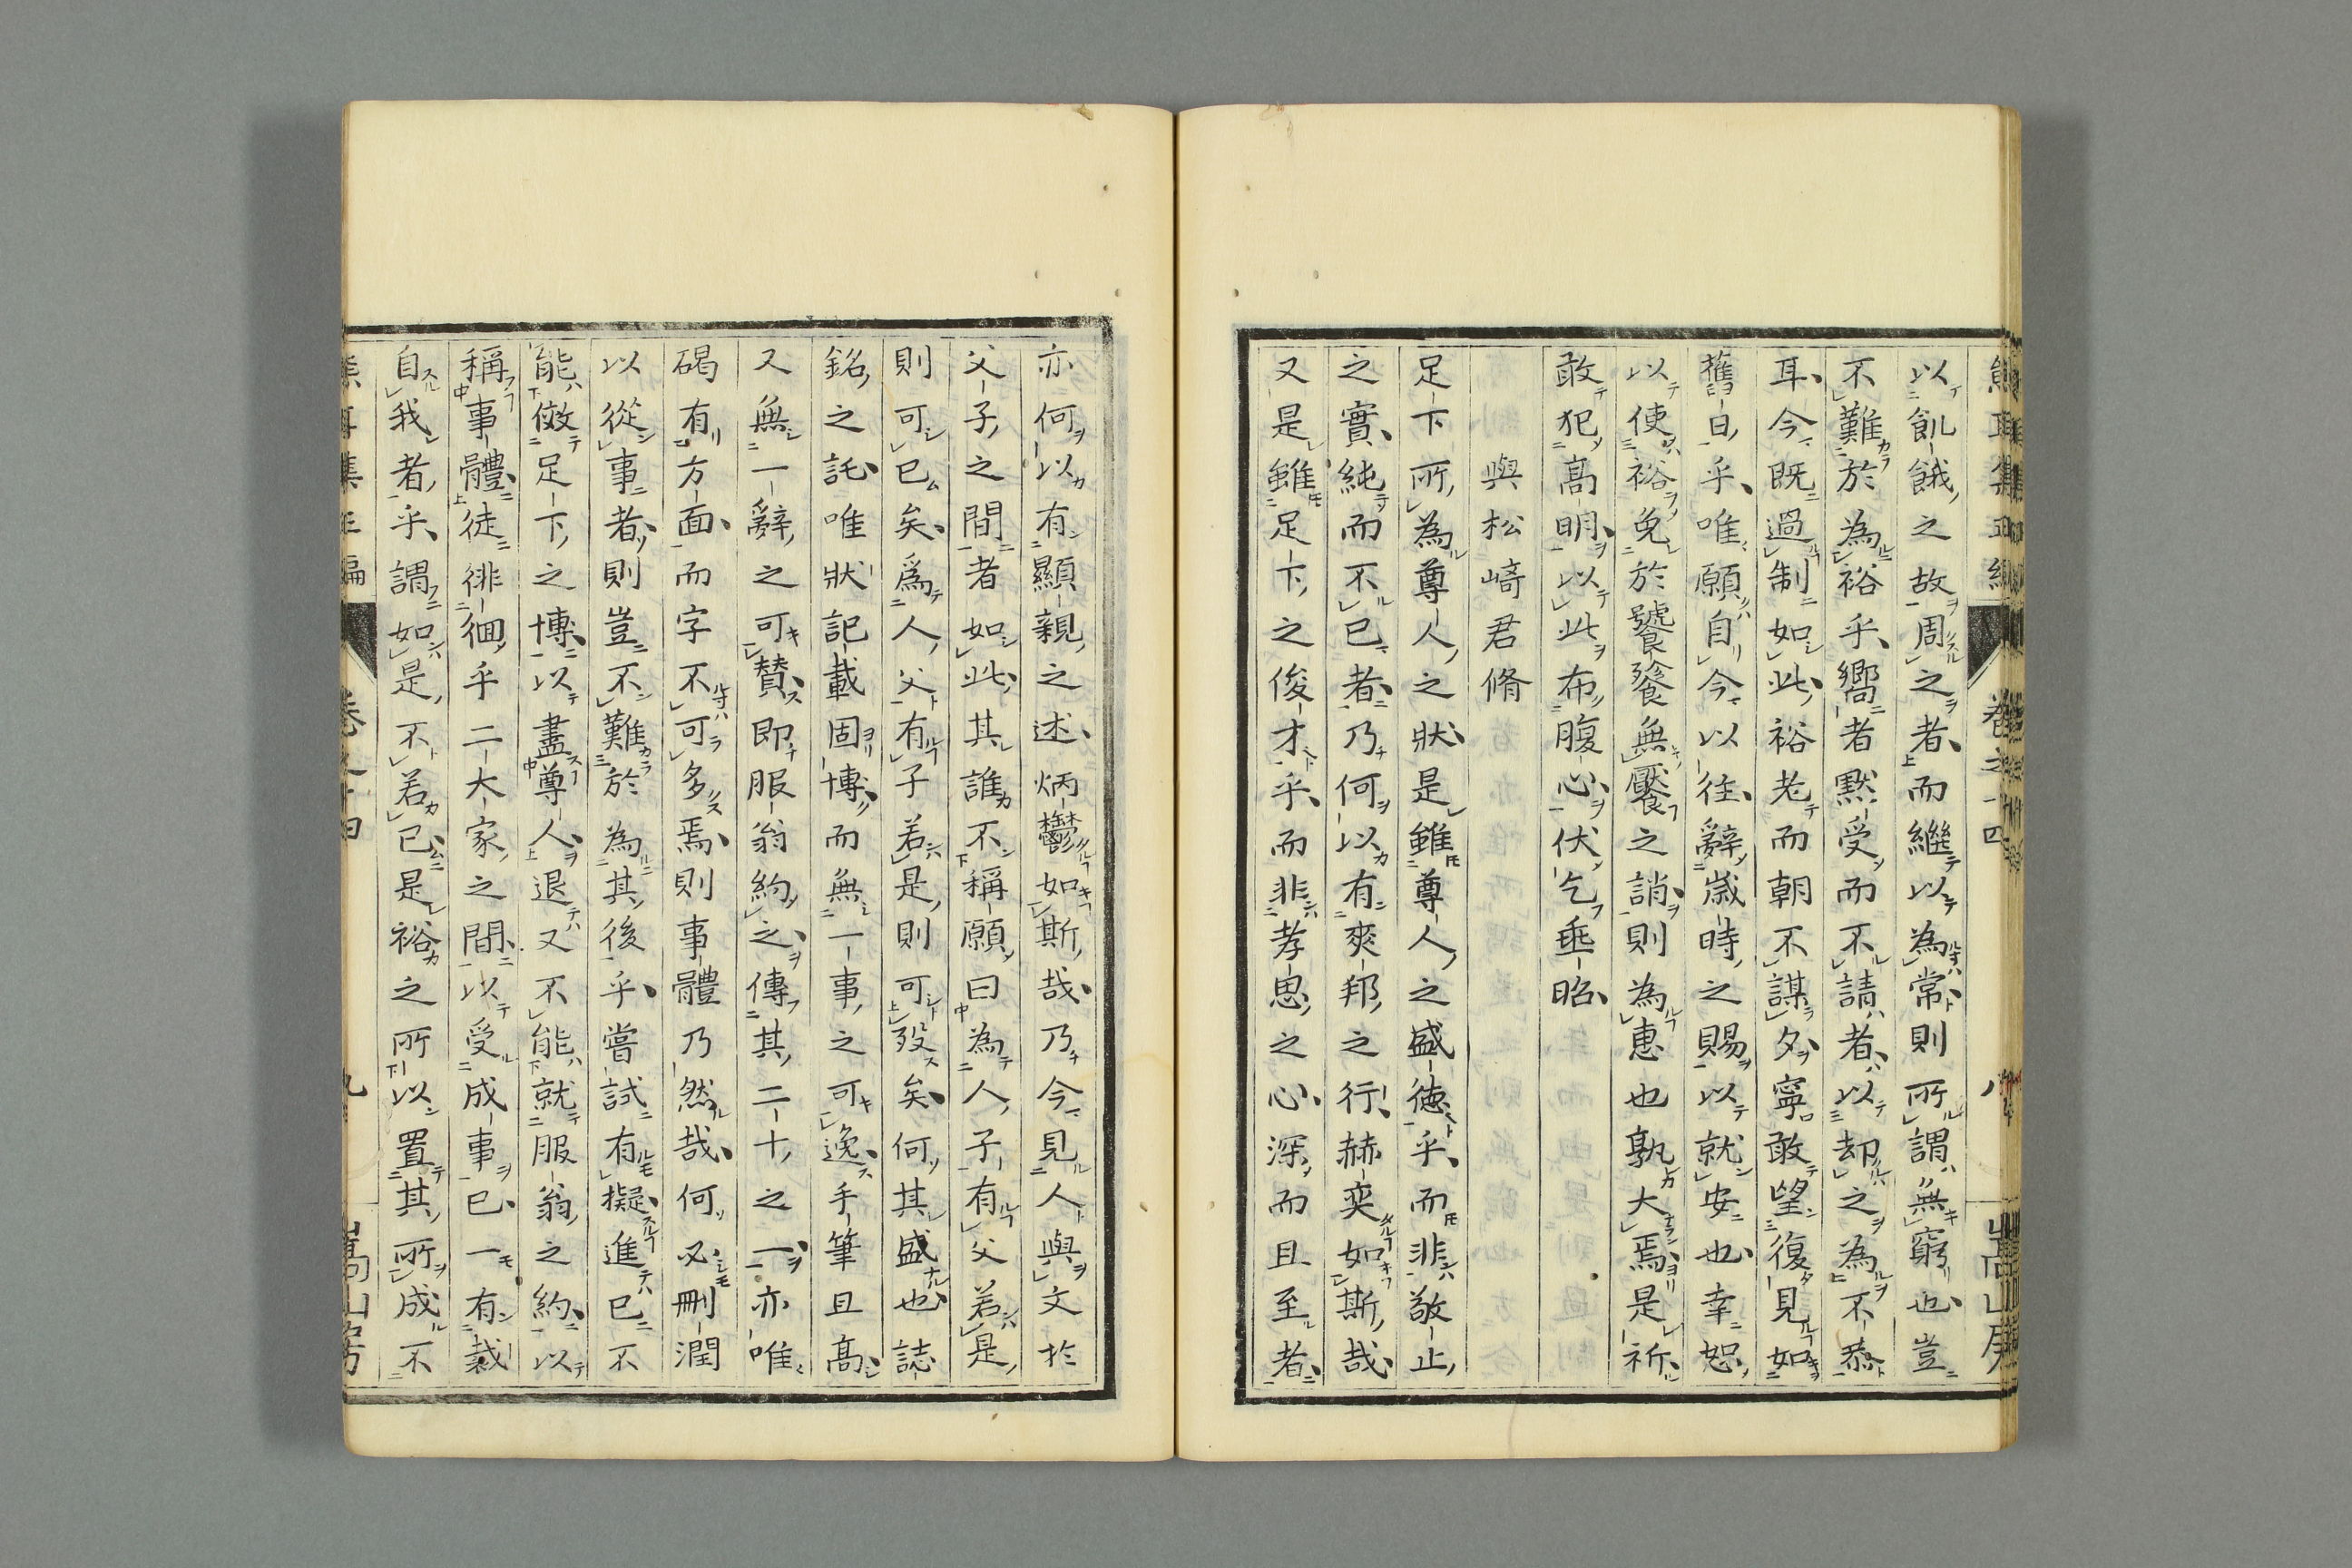 以飢餓之故周之者而繼以為常則所謂無窮也豈
不難於為裕乎嚮者默受而不請者以却之為不恭
耳今既過制如此裕老而朝不謀夕寧敢望復見如
舊日乎唯願自今以往辭歲時之賜以就安也幸恕
以使裕免於饕餮無饜之誚則為惠也孰大焉是祈
敢犯高明以此布腹心伏乞垂昭
與松﨑君脩
足下所為尊人之狀是雖尊人之盛德乎而非敬止
之實純而不已者乃何以有奭邦之行赫奕如斯哉
又是雖足下之俊才乎而非孝思之心深而且至者
亦何以有顯親之述炳鬱如斯哉乃今見人與文於
父子之間者如此其誰不稱願曰為人子有父若是
則可已矣爲人父有子若是則可歿矣何其盛也誌
銘之託唯狀記載固博而無一事之可逸手筆且高
又無一辭之可賛即服翁約之傳其二十之一亦唯
碣有方面而字不可多焉則事體乃然哉何必刪潤
以從事者則豈不難於為其後乎嘗試有擬進已不
能傚足下之博以盡尊人退又不能就服翁之約以
稱事體徒徘徊乎二大家之間以受成事已一有裁
自我者乎謂如是不若已是裕之所以置其所成不